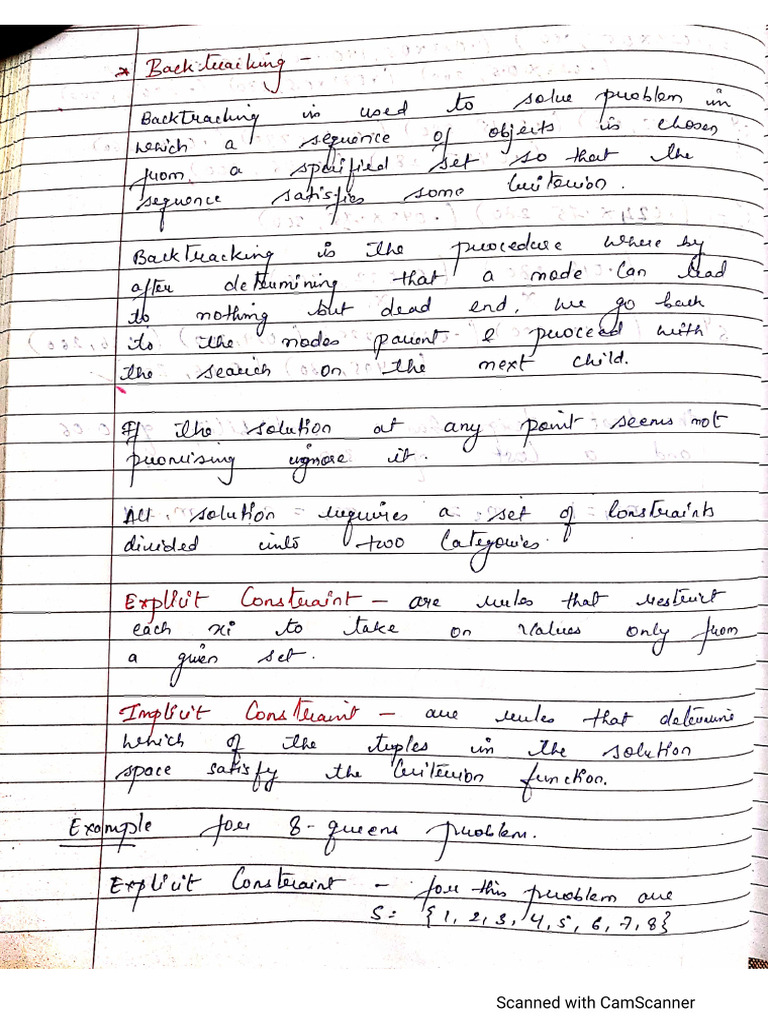 * Backtracking -
Backtracking is used to solve problem in
which a sequence of objects is chosen
from a specified set so that the
sequence satisfies some criterion.
Backtracking is the procedure where by
after determining that a node can lead
to nothing but dead end, we go back
to the nodes parent & proceed with
the search on the next child.
If the solution at any point seems not
promising ignore it.
All solution requires a set of constraints
divided into two categories.
Explicit Constraint - are rules that restrict
each xi to take on values only from
a given set.
Implicit Constraint - are rules that determine
which of the tuples in the solution
space satisfy the criterion function.
Example for 8-queens problem.
Explicit Constraint - for this problem are
S = {1, 2, 3, 4, 5, 6, 7, 8}
Scanned with CamScanner